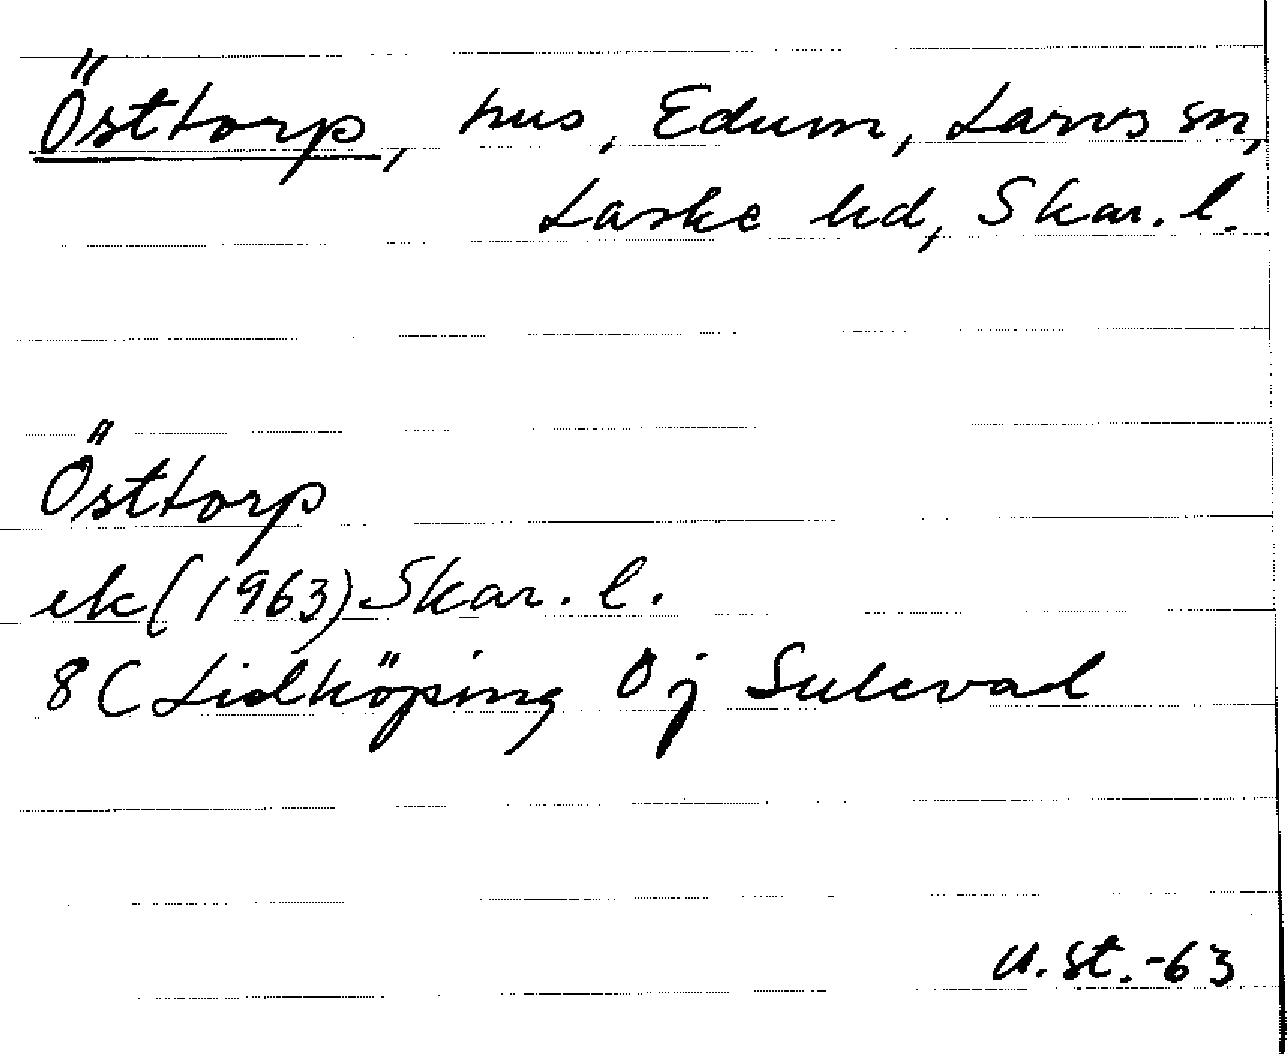 Östtorp, hus, Edum, Larvs sn,
Laske hd, Skar. l.
Östtorp
ek (1963) Skar. l.
8C Lidköping 0j Sulevad
U.St.-63